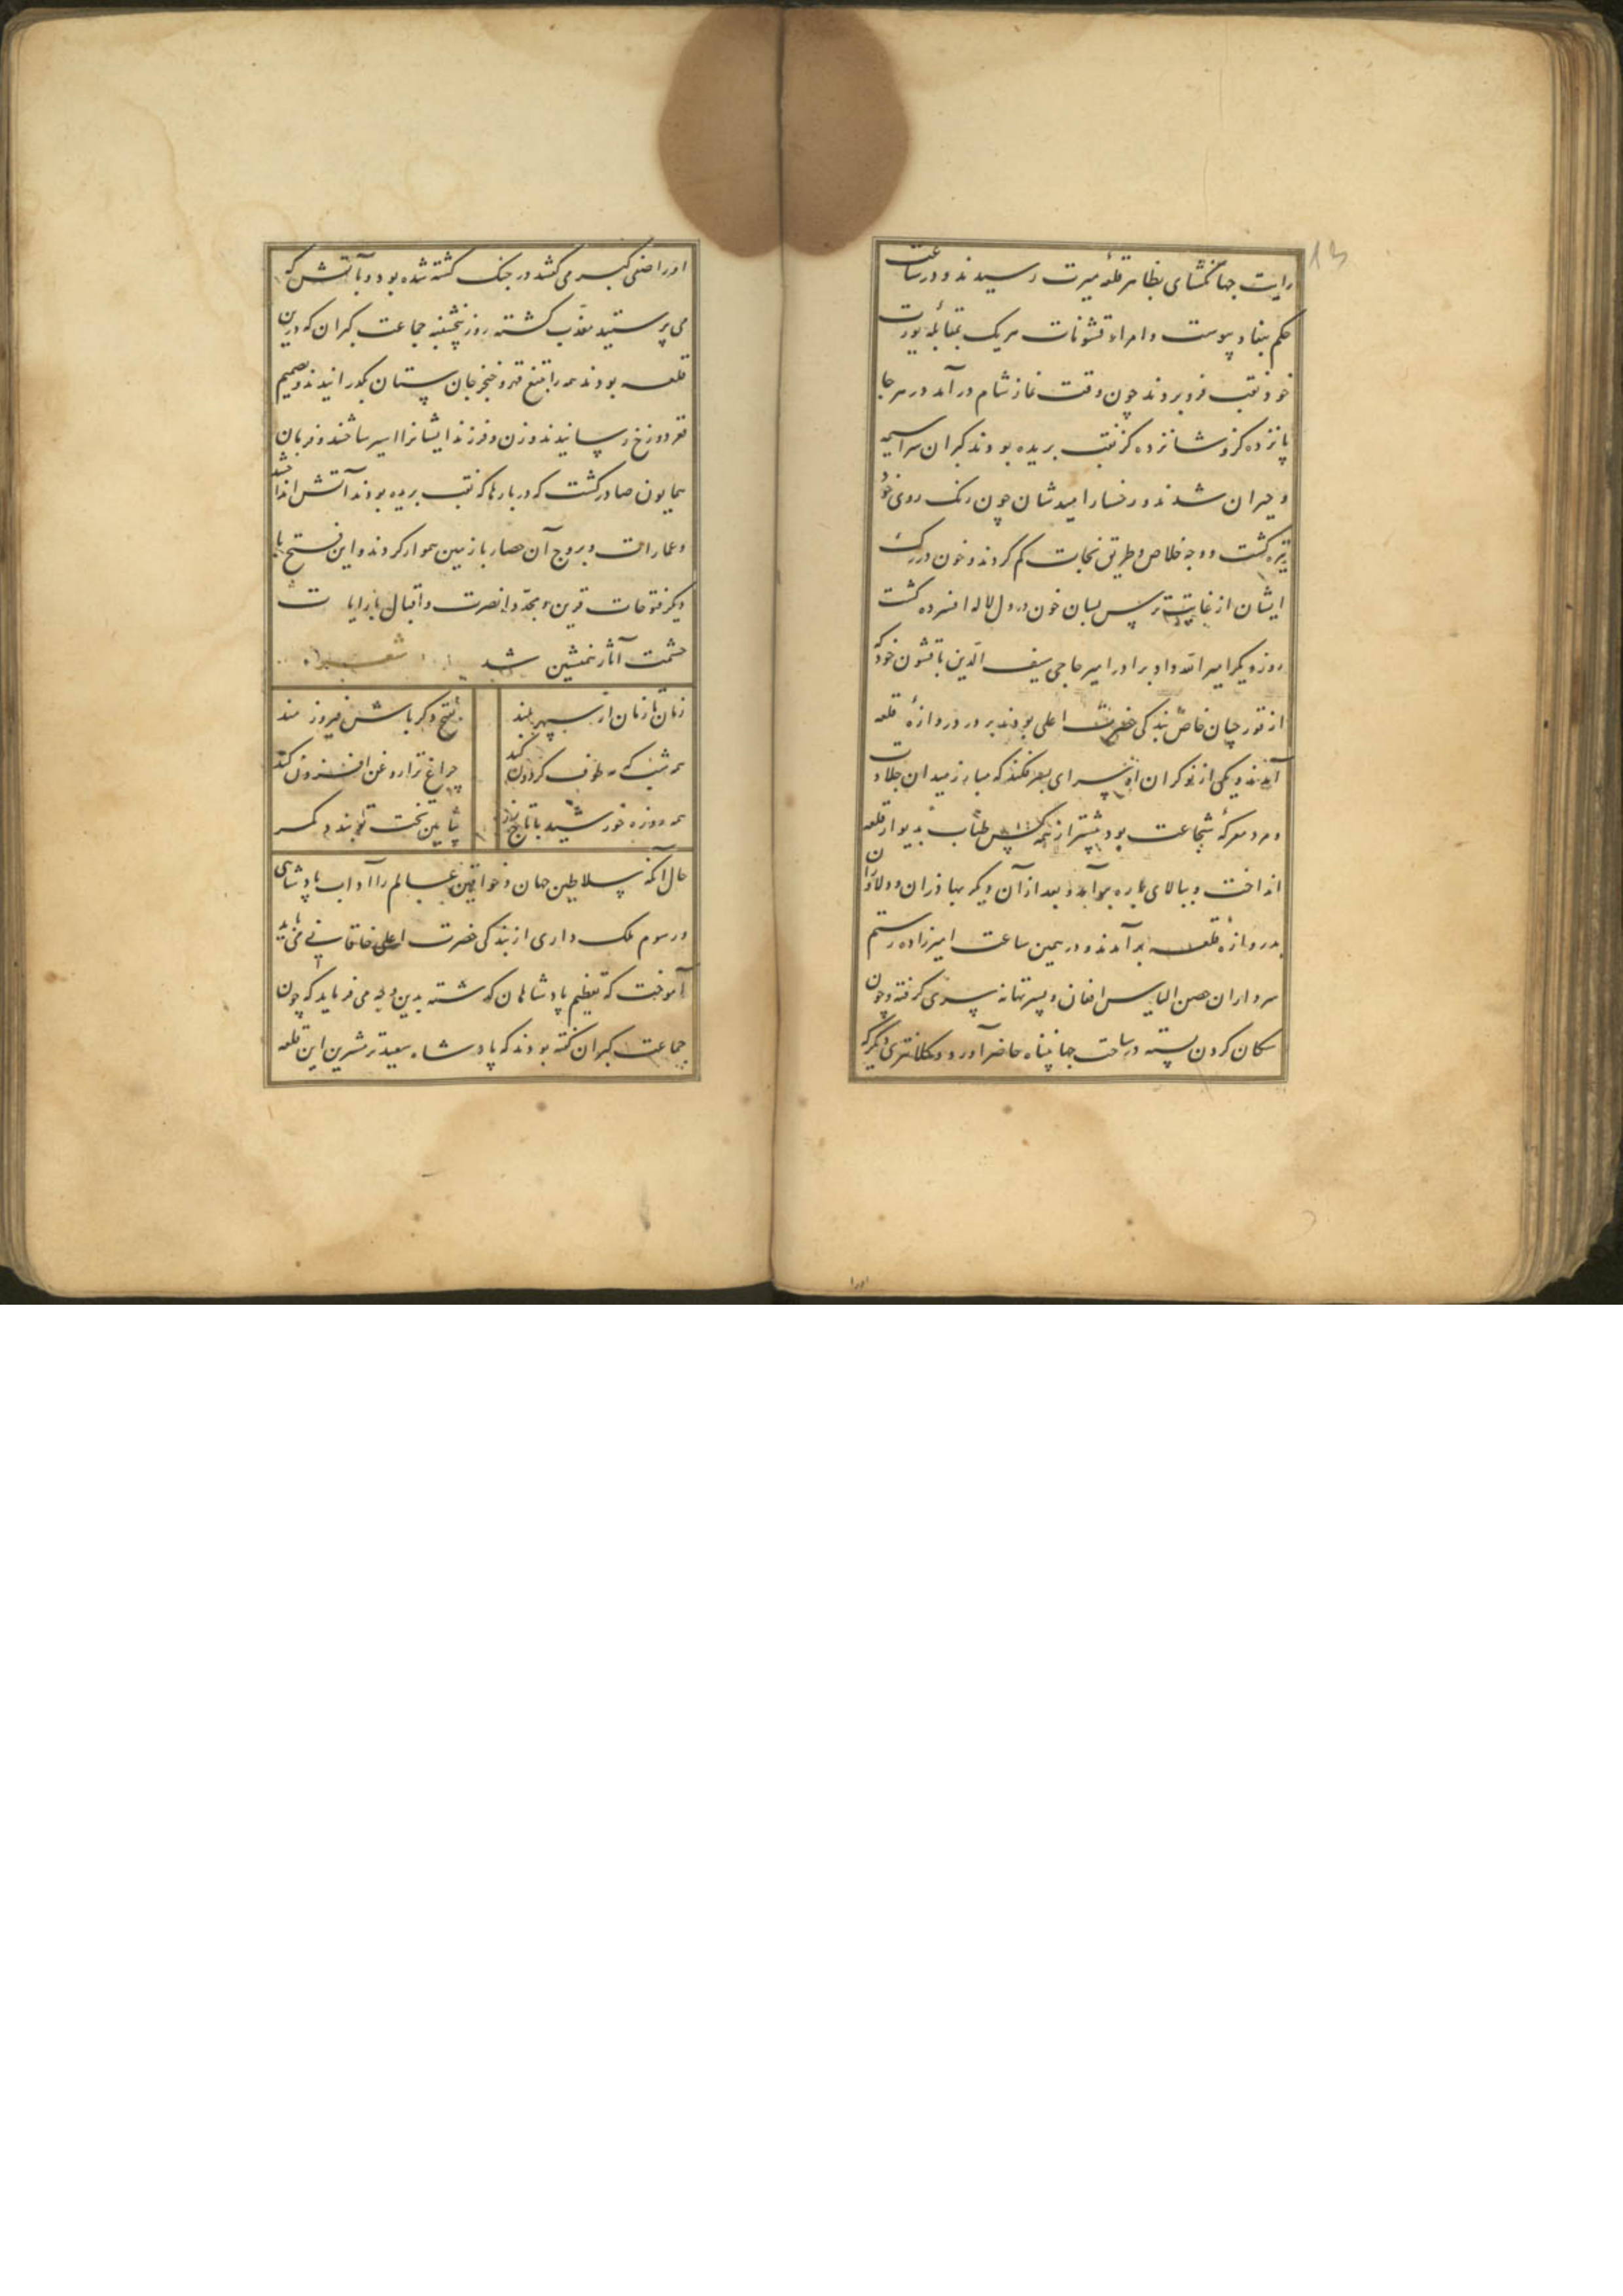 رایت جهانگشای بظاهر قلعهٔ میرت رسیدند و در ساعت
حکم بنفاذ پیوست و امراء قشونات هریک بمقابلهٔ یورت
خود نقب فرو بردند چون وقت نماز شام در آمد در هرجا
پانزده گز و شانزده گز نقب بریده بودند کبران سراسیمه
و حیران شدند و رخسار امیدشان چون رنک روی خود
تیره کشت و وجه خلاص و طریق نجات کم کردند و خون در رک
ایشان از غایت ترس بسان خون در دل لاله افسرده کشت
روز دیگر امیر الله داد برادر امیر حاجی سیف الدین با قشون خود که
از قورچیان خاص بندکی حضرت اعلی بودند بر در دروازهٔ قلعه
آمدند و یکی از نوکران او سرای بعد نکند که مبارز میدان جلادت
و مرد معرکهٔ شجاعت بود پیشتر از همه کس طناب بدیوار قلعه
انداخت و ببالای باره برآمد و بعد از آن دیگر بهادران و دلاوران
بدروازهٔ قلعه برآمدند و در همین ساعت امیرزاده رستم
سرداران حصن الیاس افغان و پسر تهانه سری گرفته و چون
سکان گردن بسته در ساحت جهانپناه حاضر آورد و کلانتری دیگر که
اورا
اورا صفی کبر می کفتند در جنک کشته شده بود و بآتش که
می پرستید معذب کشته روز پنجشنبه جماعت کبران که درین
قلعه بودند همه را بتیغ قهر و خنجر جان ستان بگذرانیدند و بصمیم
قعر دوزخ رسانیدند و زن و فرزند ایشانرا اسیر ساختند و فرمان
همایون صادر کشت که در بارها که نقب بریده بودند آتش انداختند
و عمارات و بروج آن حصار با زمین هموار کردند و این فتح با
دیگر فتوحات قرین و مجددا نصرت و اقبال با رایات
حشمت آثار همنشین شد شعر
زمان تا زمان از سپهر بلند بفتح دگر باش فیروزمند
همه شب که مه طوف گردون کند چراغ ترا روغن افزون کند
همه روزه خورشید با تاج زر بپایین تخت تو بندد کمر
حال آنکه سلاطین جهان و خواقین عالم را آداب پادشاهی
و رسوم ملک داری از بندکی حضرت اعلی خاقانی می باید
آموخت که تعظیم پادشاهان گذشته بدین وجه می فرماید که چون
جماعت کبران کفته بودند که پادشاه سعید ترمشیرین این قلعه